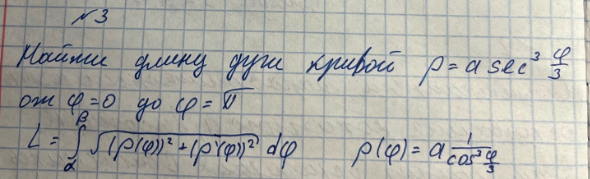 №3
Найти длину дуги кривой ρ = a sec³ φ/3
от φ=0 до φ=π
L = ∫_α^β √((ρ(φ))² + (ρ'(φ))²) dφ ρ(φ) = a 1/cos³ φ/3